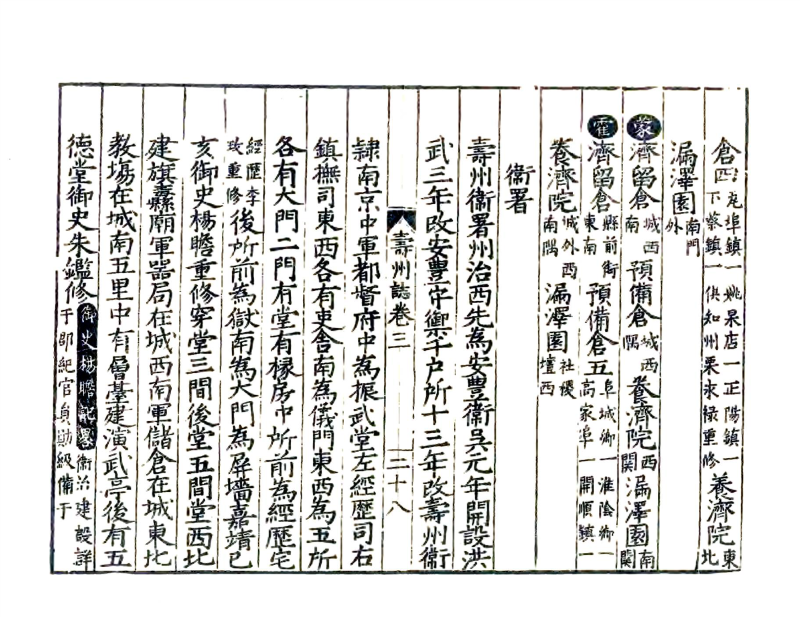 倉四尨埠鎮一姚杲店一正陽鎮一下蔡鎮一俱知州栗永祿重修養濟院東北
漏澤園南門外
蒙濟留倉城西南預備倉城西隅養濟院西關漏澤園南關
霍濟留倉縣前街東南預備倉五阜城鄉一淮陰鄉一高家埠一開順鎮一
養濟院城外西南隅漏澤園社稷壇西
衛署
壽州衛署州治西先為安豐衛吳元年開設洪
武三年改安豐守禦千戶所十三年改壽州衛
壽州誌卷三 三十八
隸南京中軍都督府中為振武堂左經歷司右
鎮撫司東西各有吏舍南為儀門東西為五所
各有大門二門有堂有椽房中所前為經歷宅
經歷李玫重修後所前為獄南為大門為屏墻嘉靖己
亥御史楊瞻重修穿堂三間後堂五間堂西北
建旗纛廟軍器局在城西南軍儲倉在城東北
教塲在城南五里中有層臺建演武亭後有五
德堂御史朱鑑修御史楊瞻記畧衛治建設詳于郡紀官員勛級備于